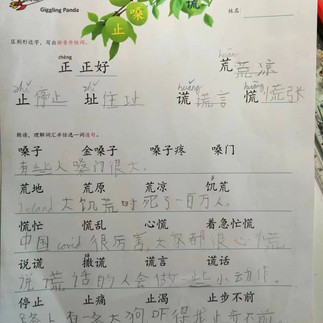 Giggling Panda
嗓
谎
止
姓名:
压到形近字,写出拼音并组词。
chèng
huāng
正 正好
荒 荒凉
zhǐ zhǐ huǎng huāng
止 停止 址 住址 谎 谎言 慌 慌张
朗读,理解词汇并任选一词造句。
嗓子 金嗓子 嗓子疼 嗓门
有些人嗓门很大。
荒地 荒原 荒凉 饥荒
Ireland 大饥荒时死了一百万人。
慌忙 慌乱 心慌 着急忙慌
中国 covid 很厉害,大家都很心慌
说谎 撒谎 谎言 谎话
说谎话的人会做一些小动作。
停止 止痛 止渴 止步不前
路上有一条大狗吓得我止步不前